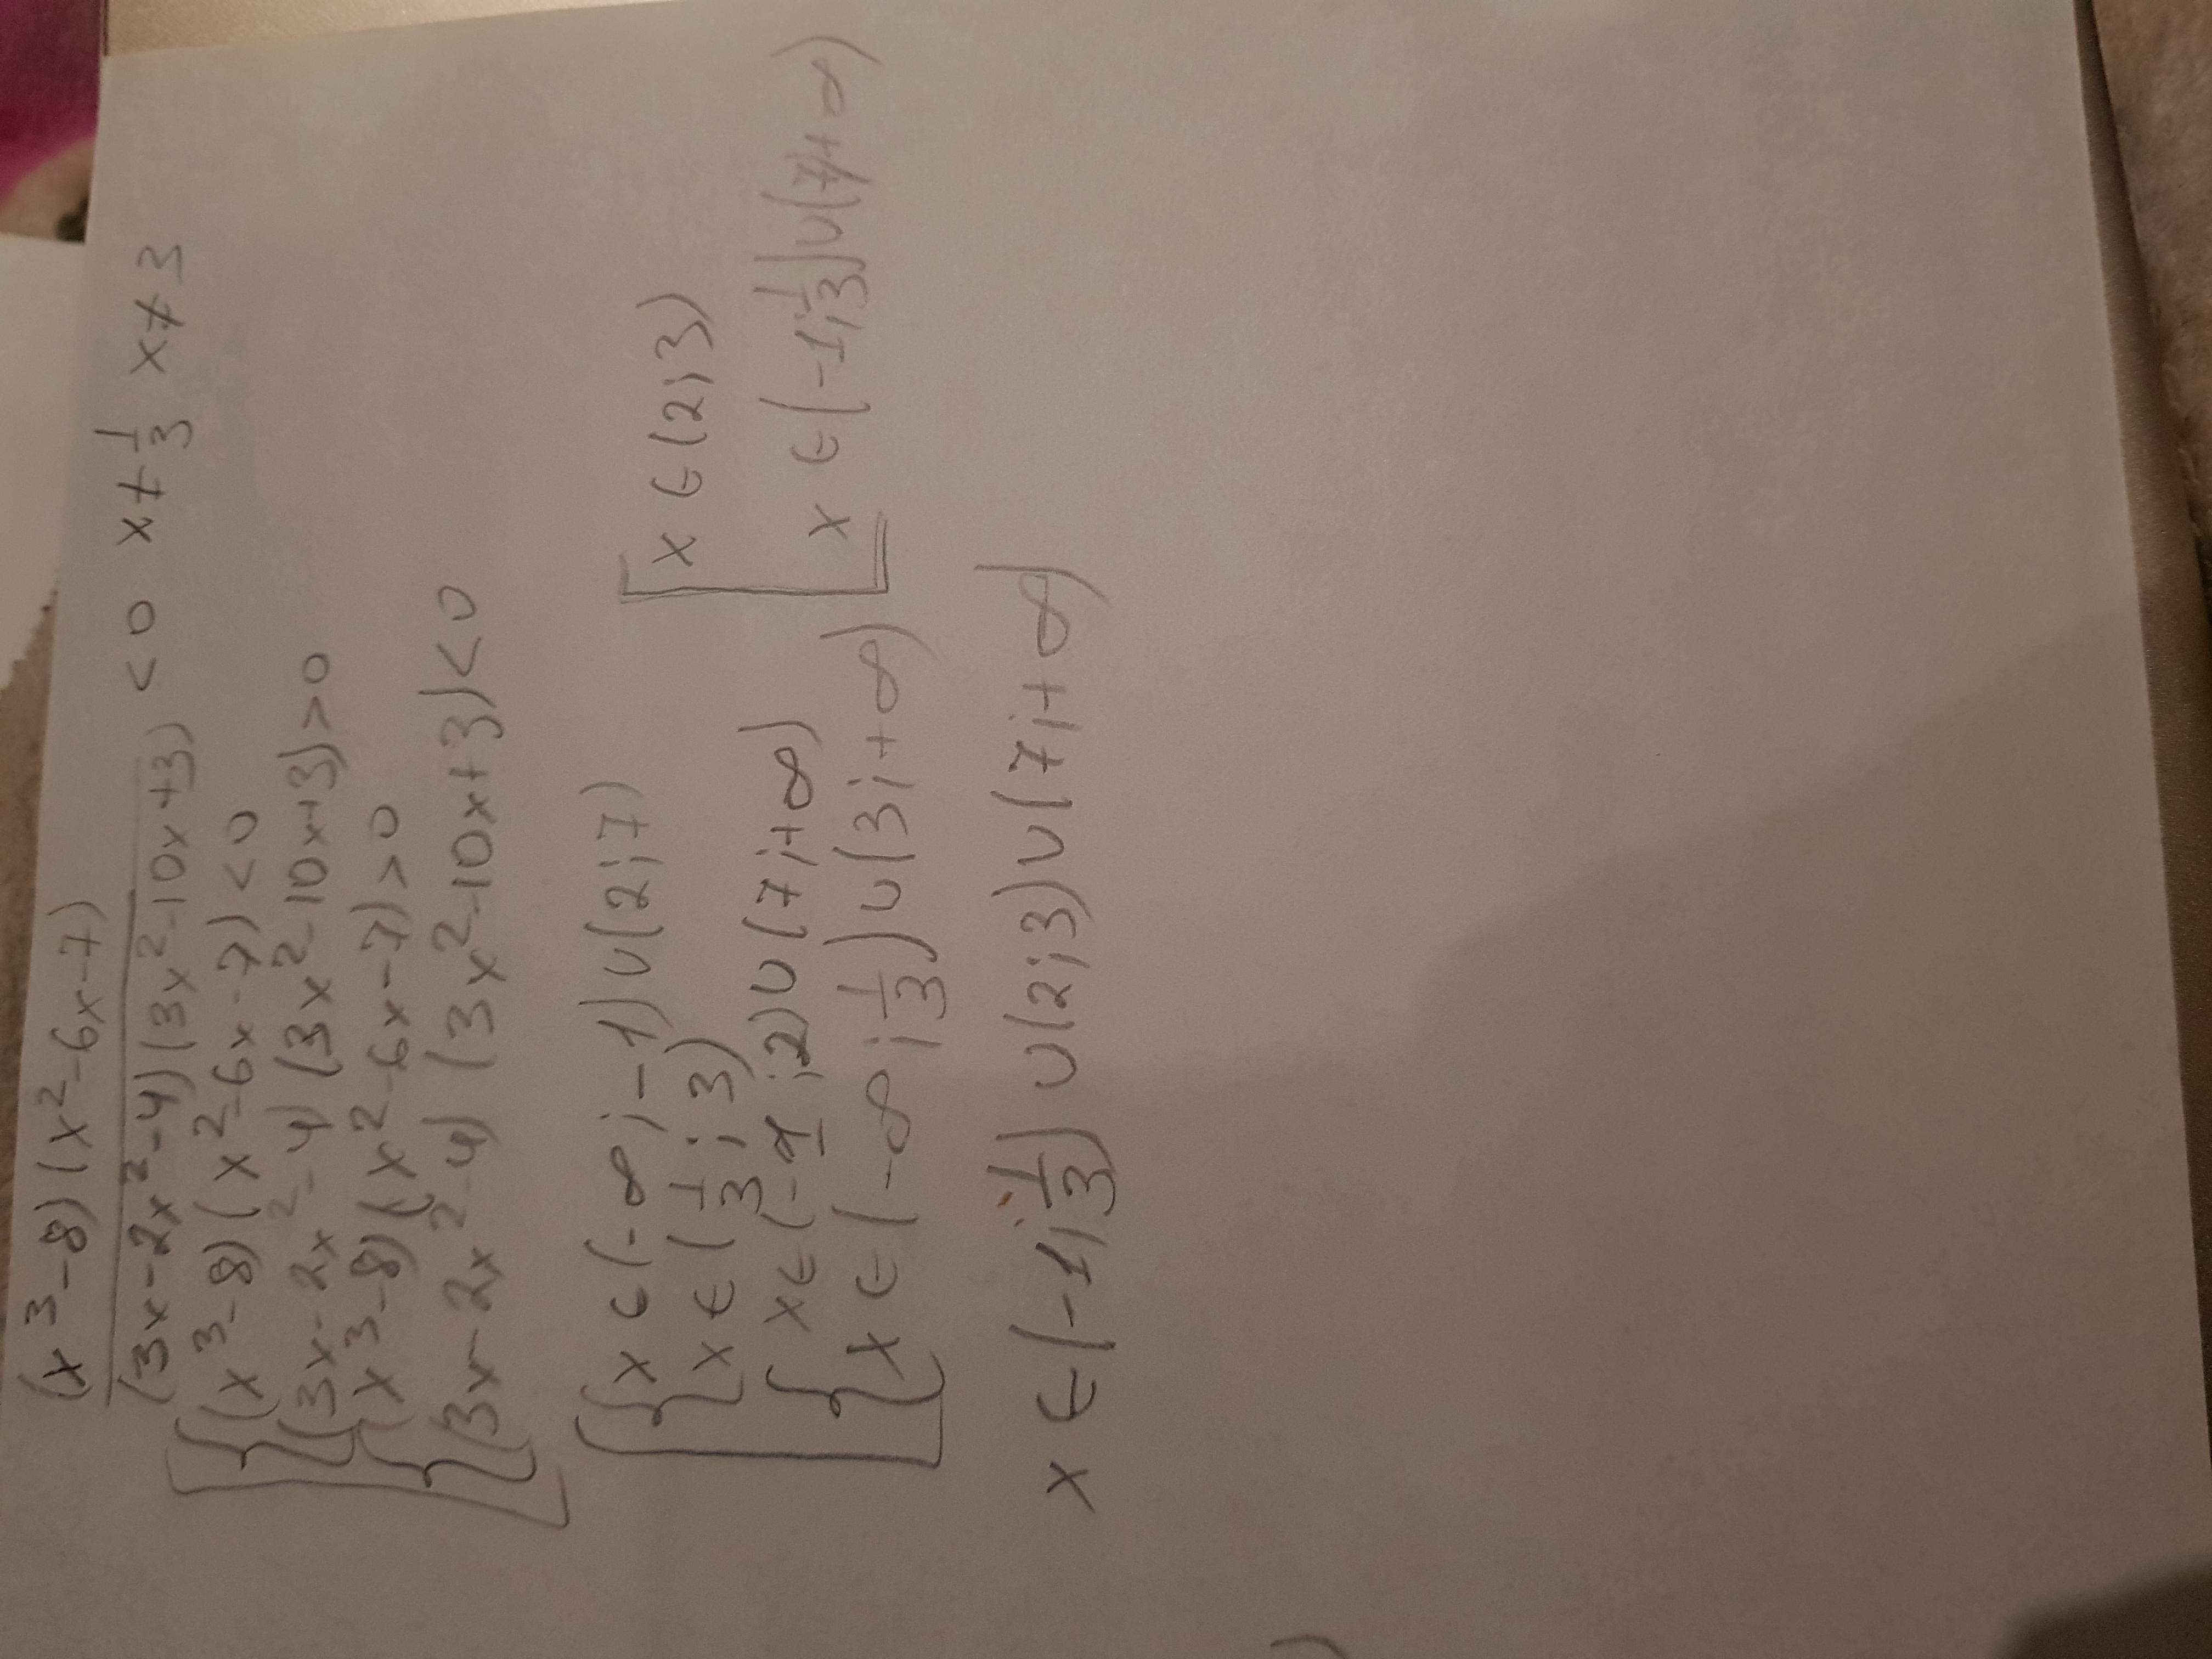 (x³-8)(x²-6x-7)
(3x-2x²-4)(3x²-10x+3) <0 x≠1/3 x≠3
(x³-8)(x²-6x-7)<0
(3x-2x²-4)(3x²-10x+3)>0
(x³-8)(x²-6x-7)>0
(3x-2x²-4)(3x²-10x+3)<0
x∈(-∞;-1)∪(2;7)
x∈(1/3;3)
x∈(-1;2)∪(7;+∞)
x∈(-∞;1/3)∪(3;+∞)
x∈(2;3)
x∈(-1;1/3)∪(7;+∞)
x∈(-1;1/3)∪(2;3)∪(7;+∞)